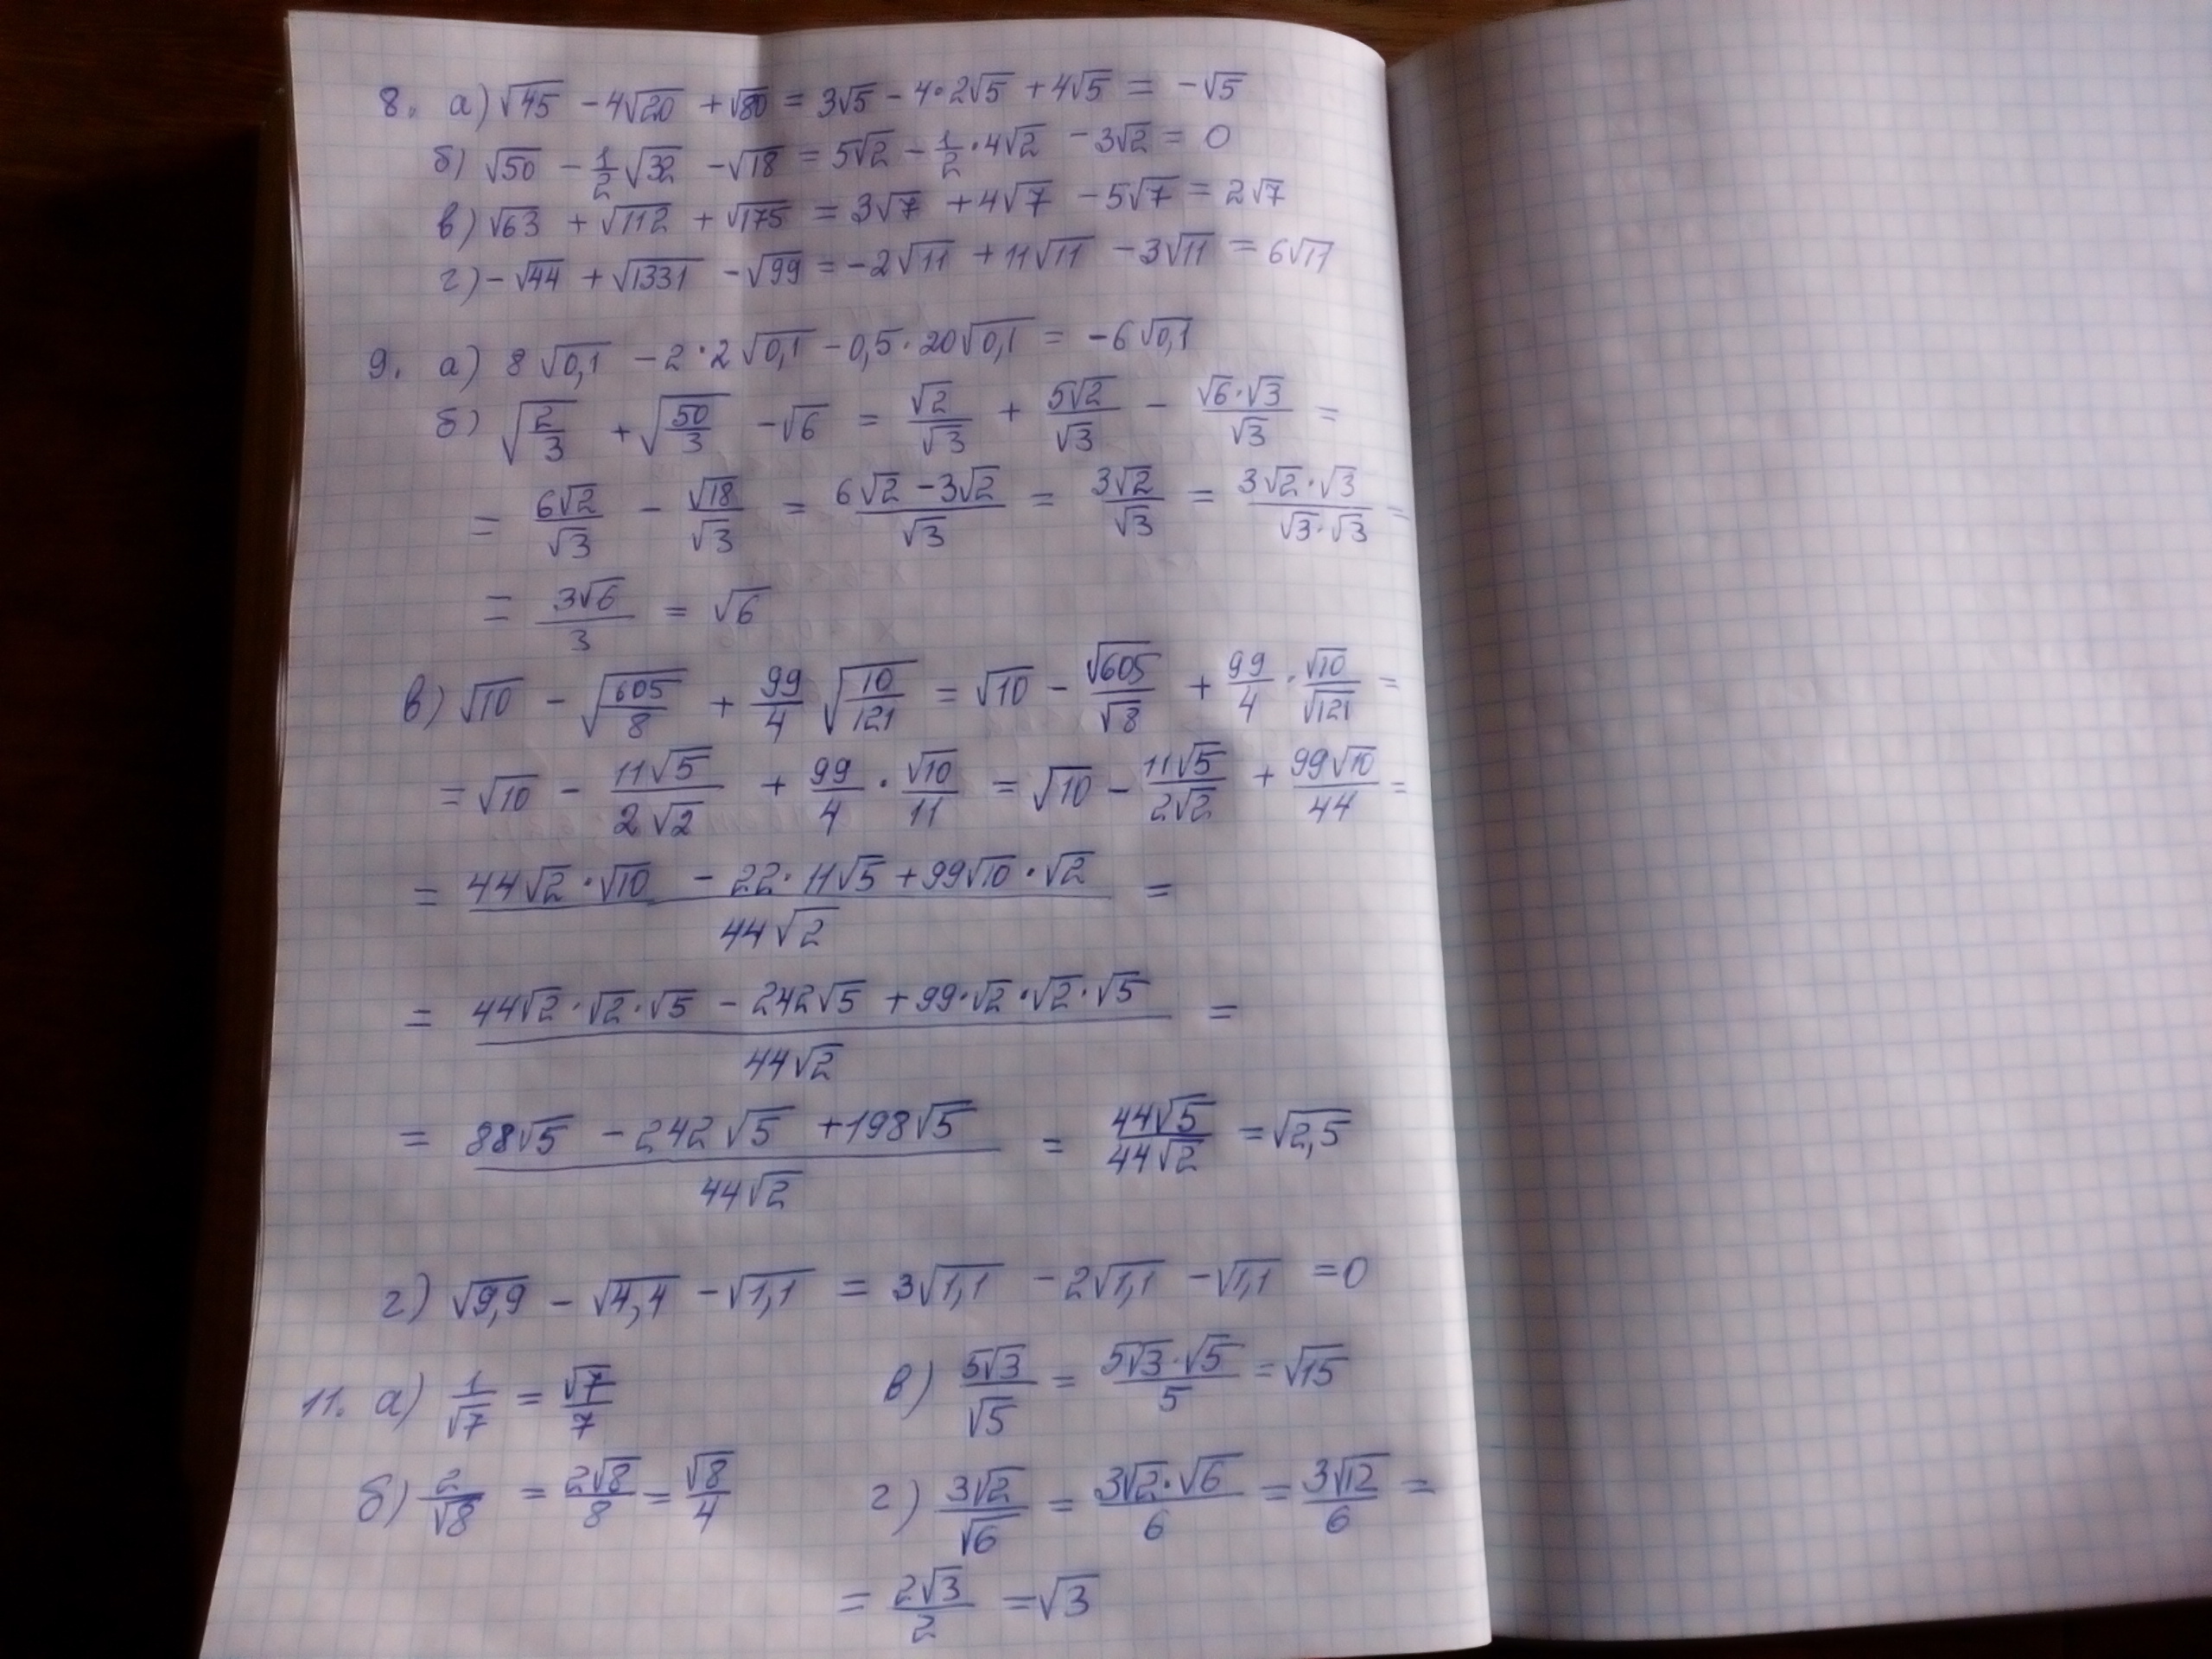 8. а) √45 - 4√20 + √80 = 3√5 - 4·2√5 + 4√5 = -√5
б) √50 - 1/2 √32 - √18 = 5√2 - 1/2·4√2 - 3√2 = 0
в) √63 + √112 + √175 = 3√7 + 4√7 - 5√7 = 2√7
г) -√44 + √1331 - √99 = -2√11 + 11√11 - 3√11 = 6√11
9. а) 8√0,1 - 2·2√0,1 - 0,5·20√0,1 = -6√0,1
б) √(2/3) + √(50/3) - √6 = √2/√3 + 5√2/√3 - √6·√3/√3 =
= 6√2/√3 - √18/√3 = (6√2 - 3√2)/√3 = 3√2/√3 = 3√2·√3/√3·√3 =
= 3√6/3 = √6
в) √10 - √(605/8) + 99/4 √(10/121) = √10 - √605/√8 + 99/4 · √10/√121 =
= √10 - 11√5/2√2 + 99/4 · √10/11 = √10 - 11√5/2√2 + 99√10/44 =
= (44√2·√10 - 22·11√5 + 99√10·√2)/44√2 =
= (44√2·√2·√5 - 242√5 + 99·√2·√2·√5)/44√2 =
= (88√5 - 242√5 + 198√5)/44√2 = 44√5/44√2 = √2,5
г) √9,9 - √4,4 - √1,1 = 3√1,1 - 2√1,1 - √1,1 = 0
11. а) 1/√7 = √7/7
в) 5√3/√5 = 5√3·√5/5 = √15
б) 2/√8 = 2√8/8 = √8/4
г) 3√2/√6 = 3√2·√6/6 = 3√12/6 =
= 2√3/2 = √3